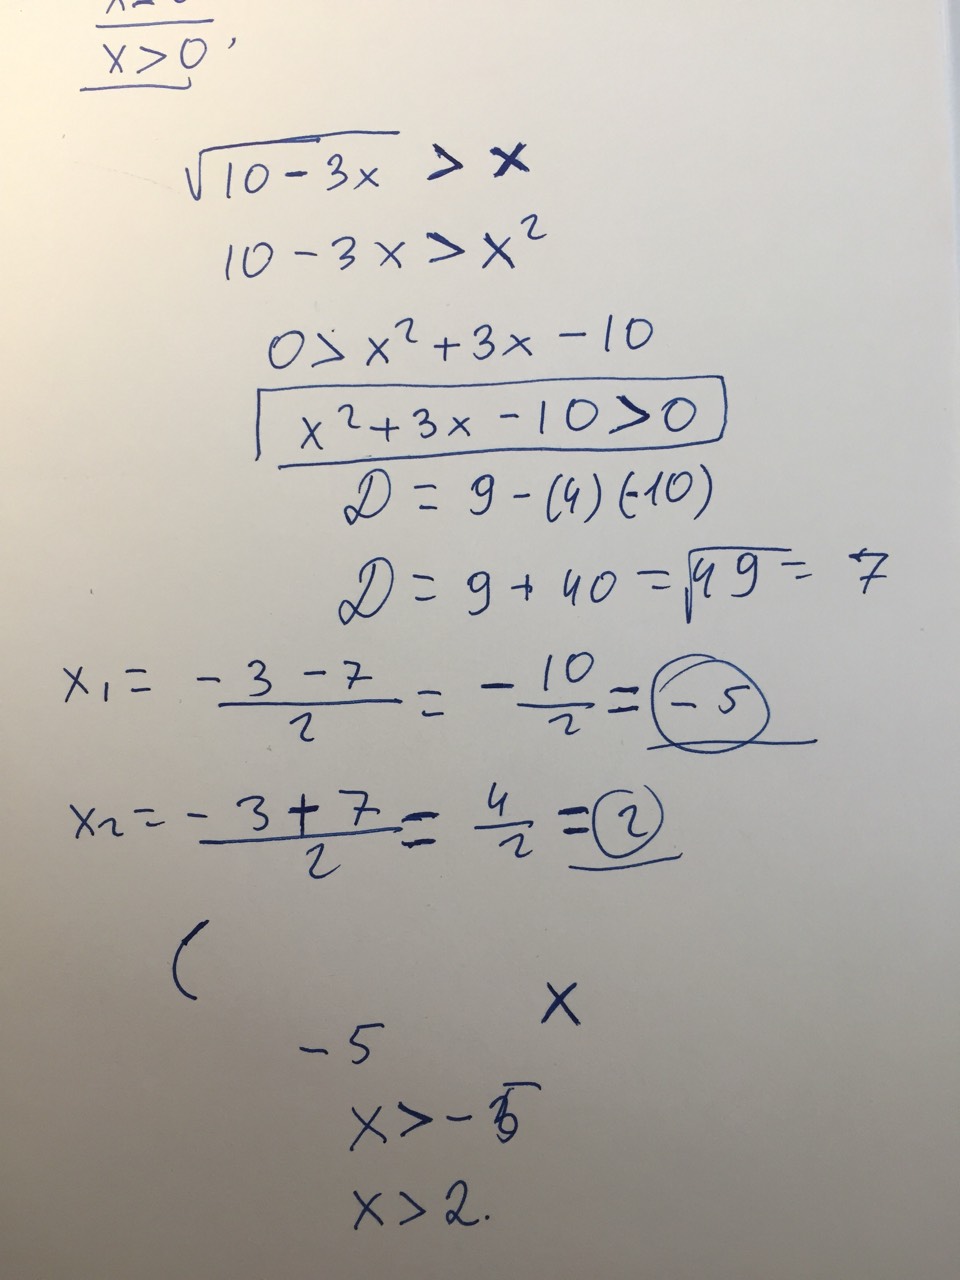 x>0,
√10-3x > x
10-3x>x²
0>x²+3x-10
x²+3x-10>0
D = 9-(4)(-10)
D = 9+40=√49= 7
x₁= -3-7/2 = -10/2 = -5
x₂= -3+7/2 = 4/2 = 2
(
x
-5
x>-5
x>2.